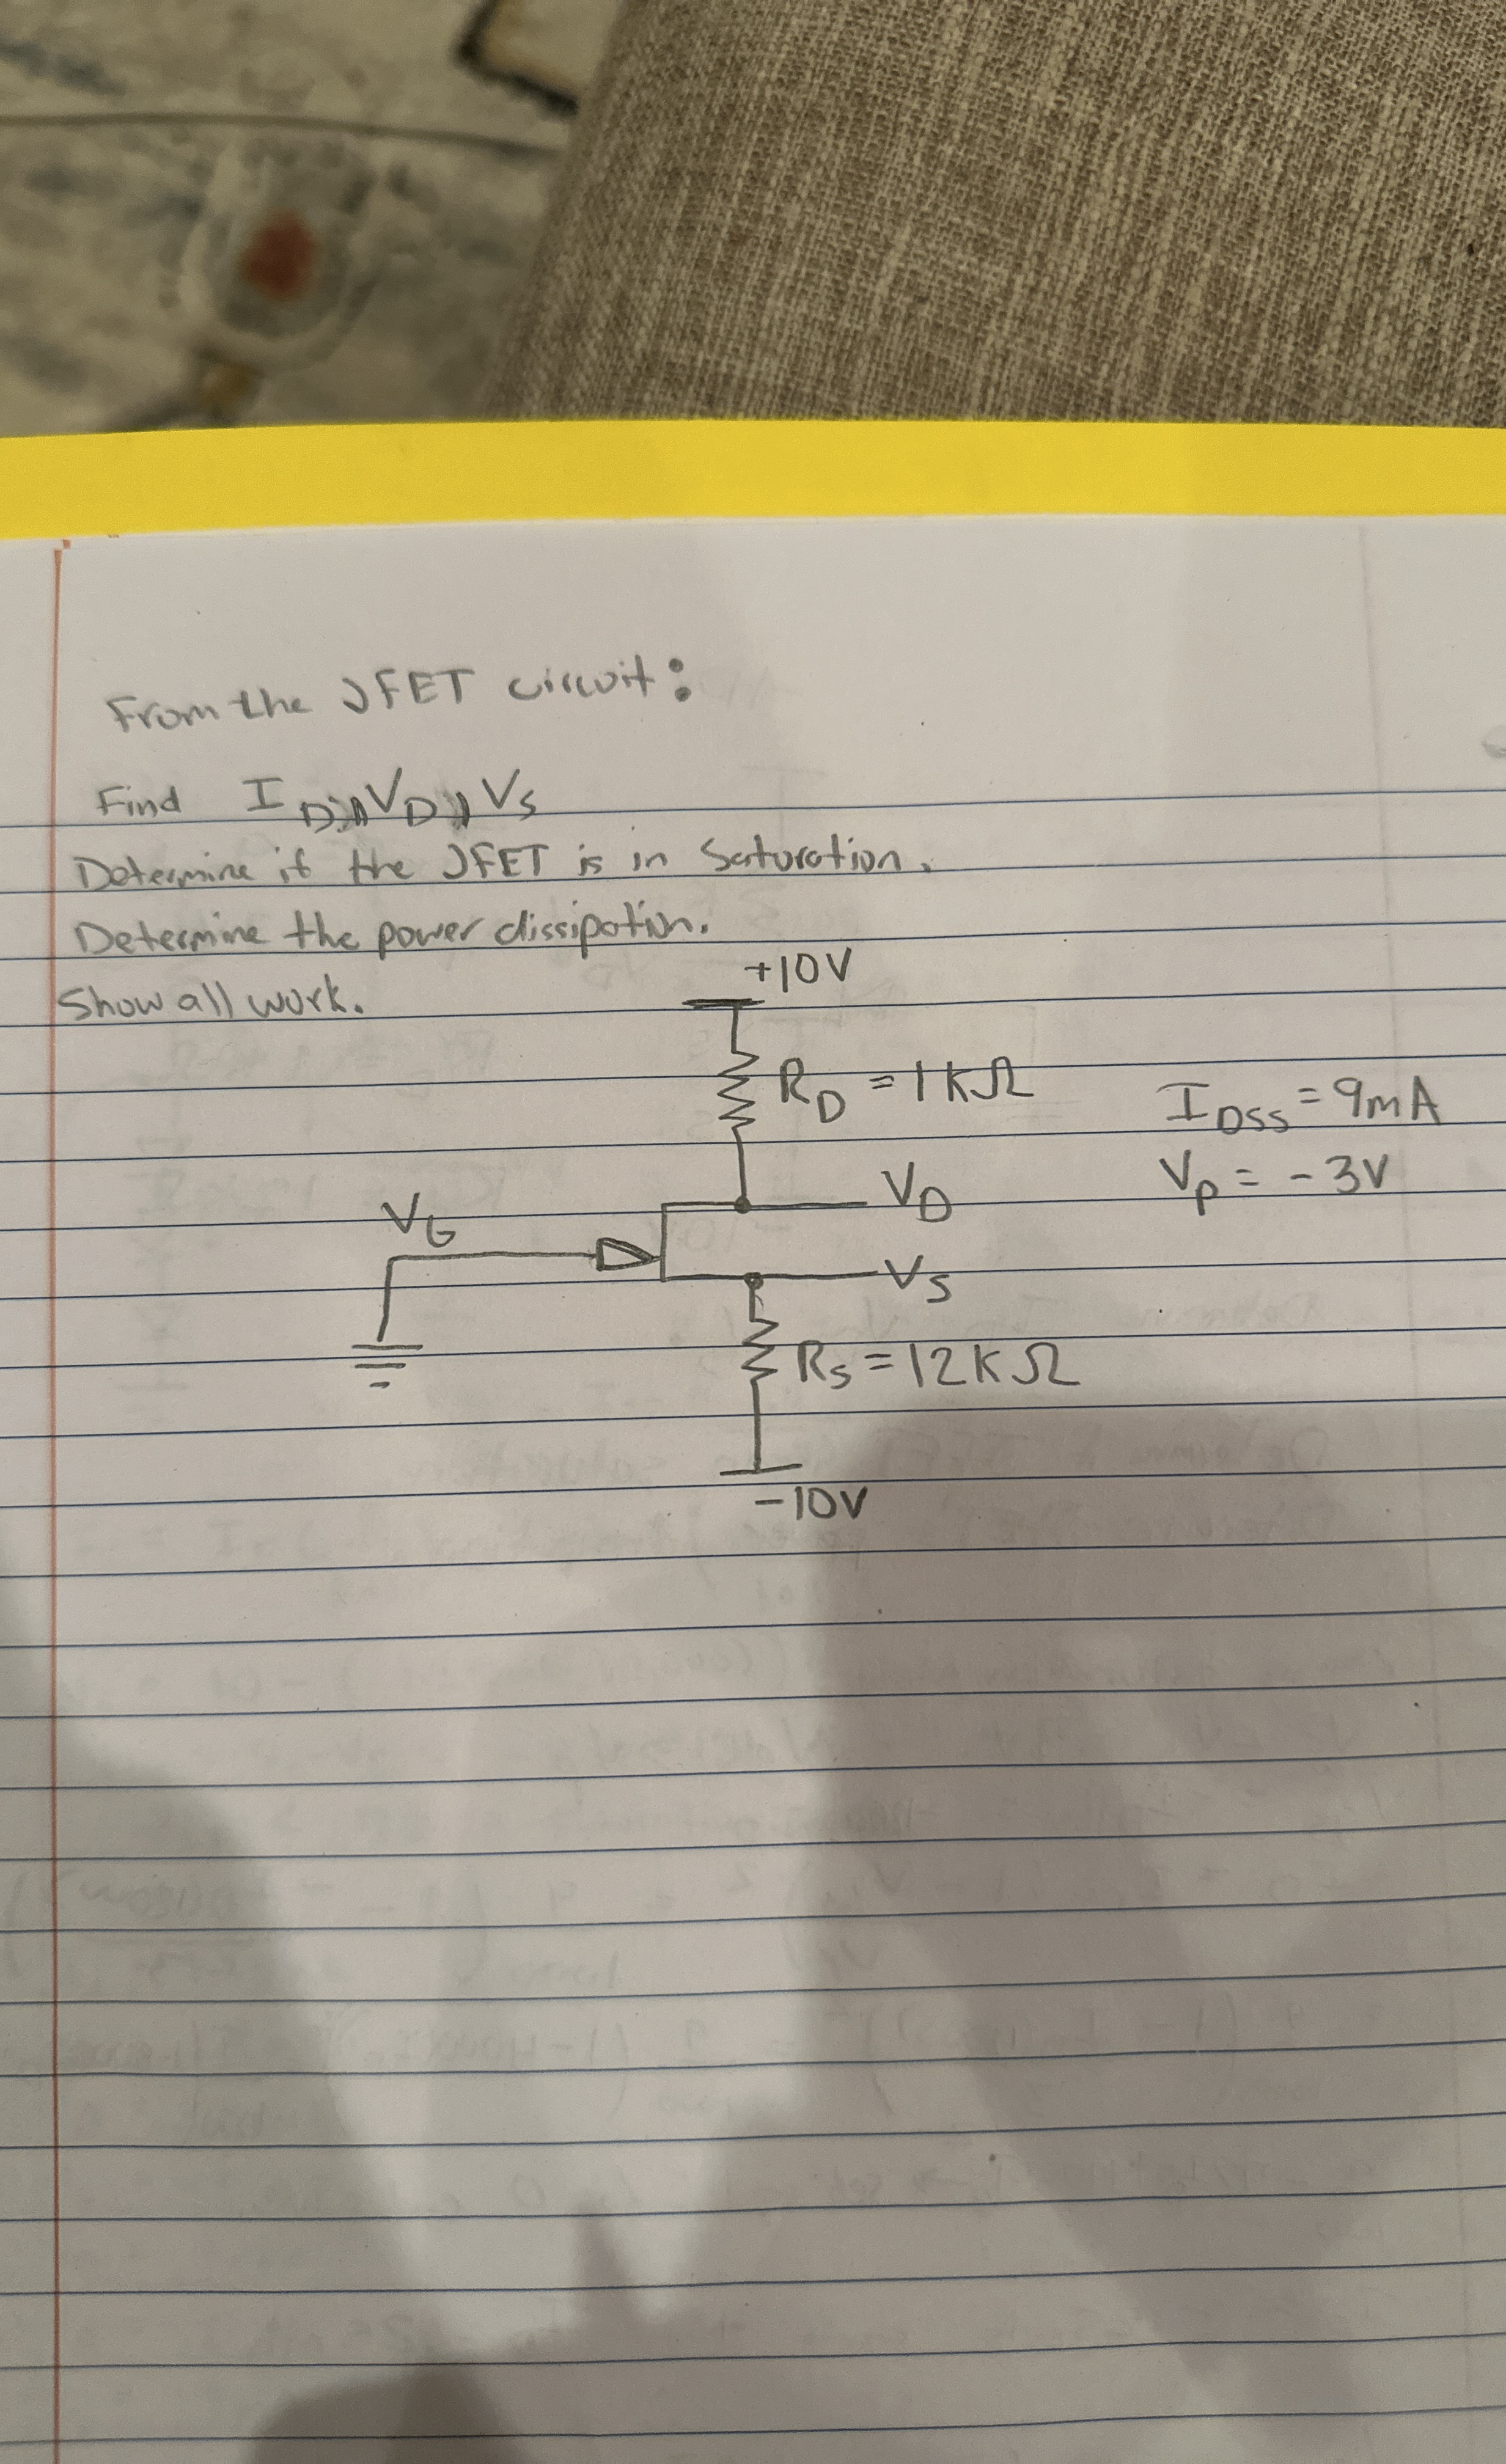 From the JFET circuit:
Find I_D, V_D, V_S
Determine if the JFET is in Saturation.
Determine the power dissipation.
Show all work.
+10V
R_D = 1KΩ
I_DSS = 9mA
V_P = -3V
V_D
V_G
V_S
R_S = 12KΩ
-10V